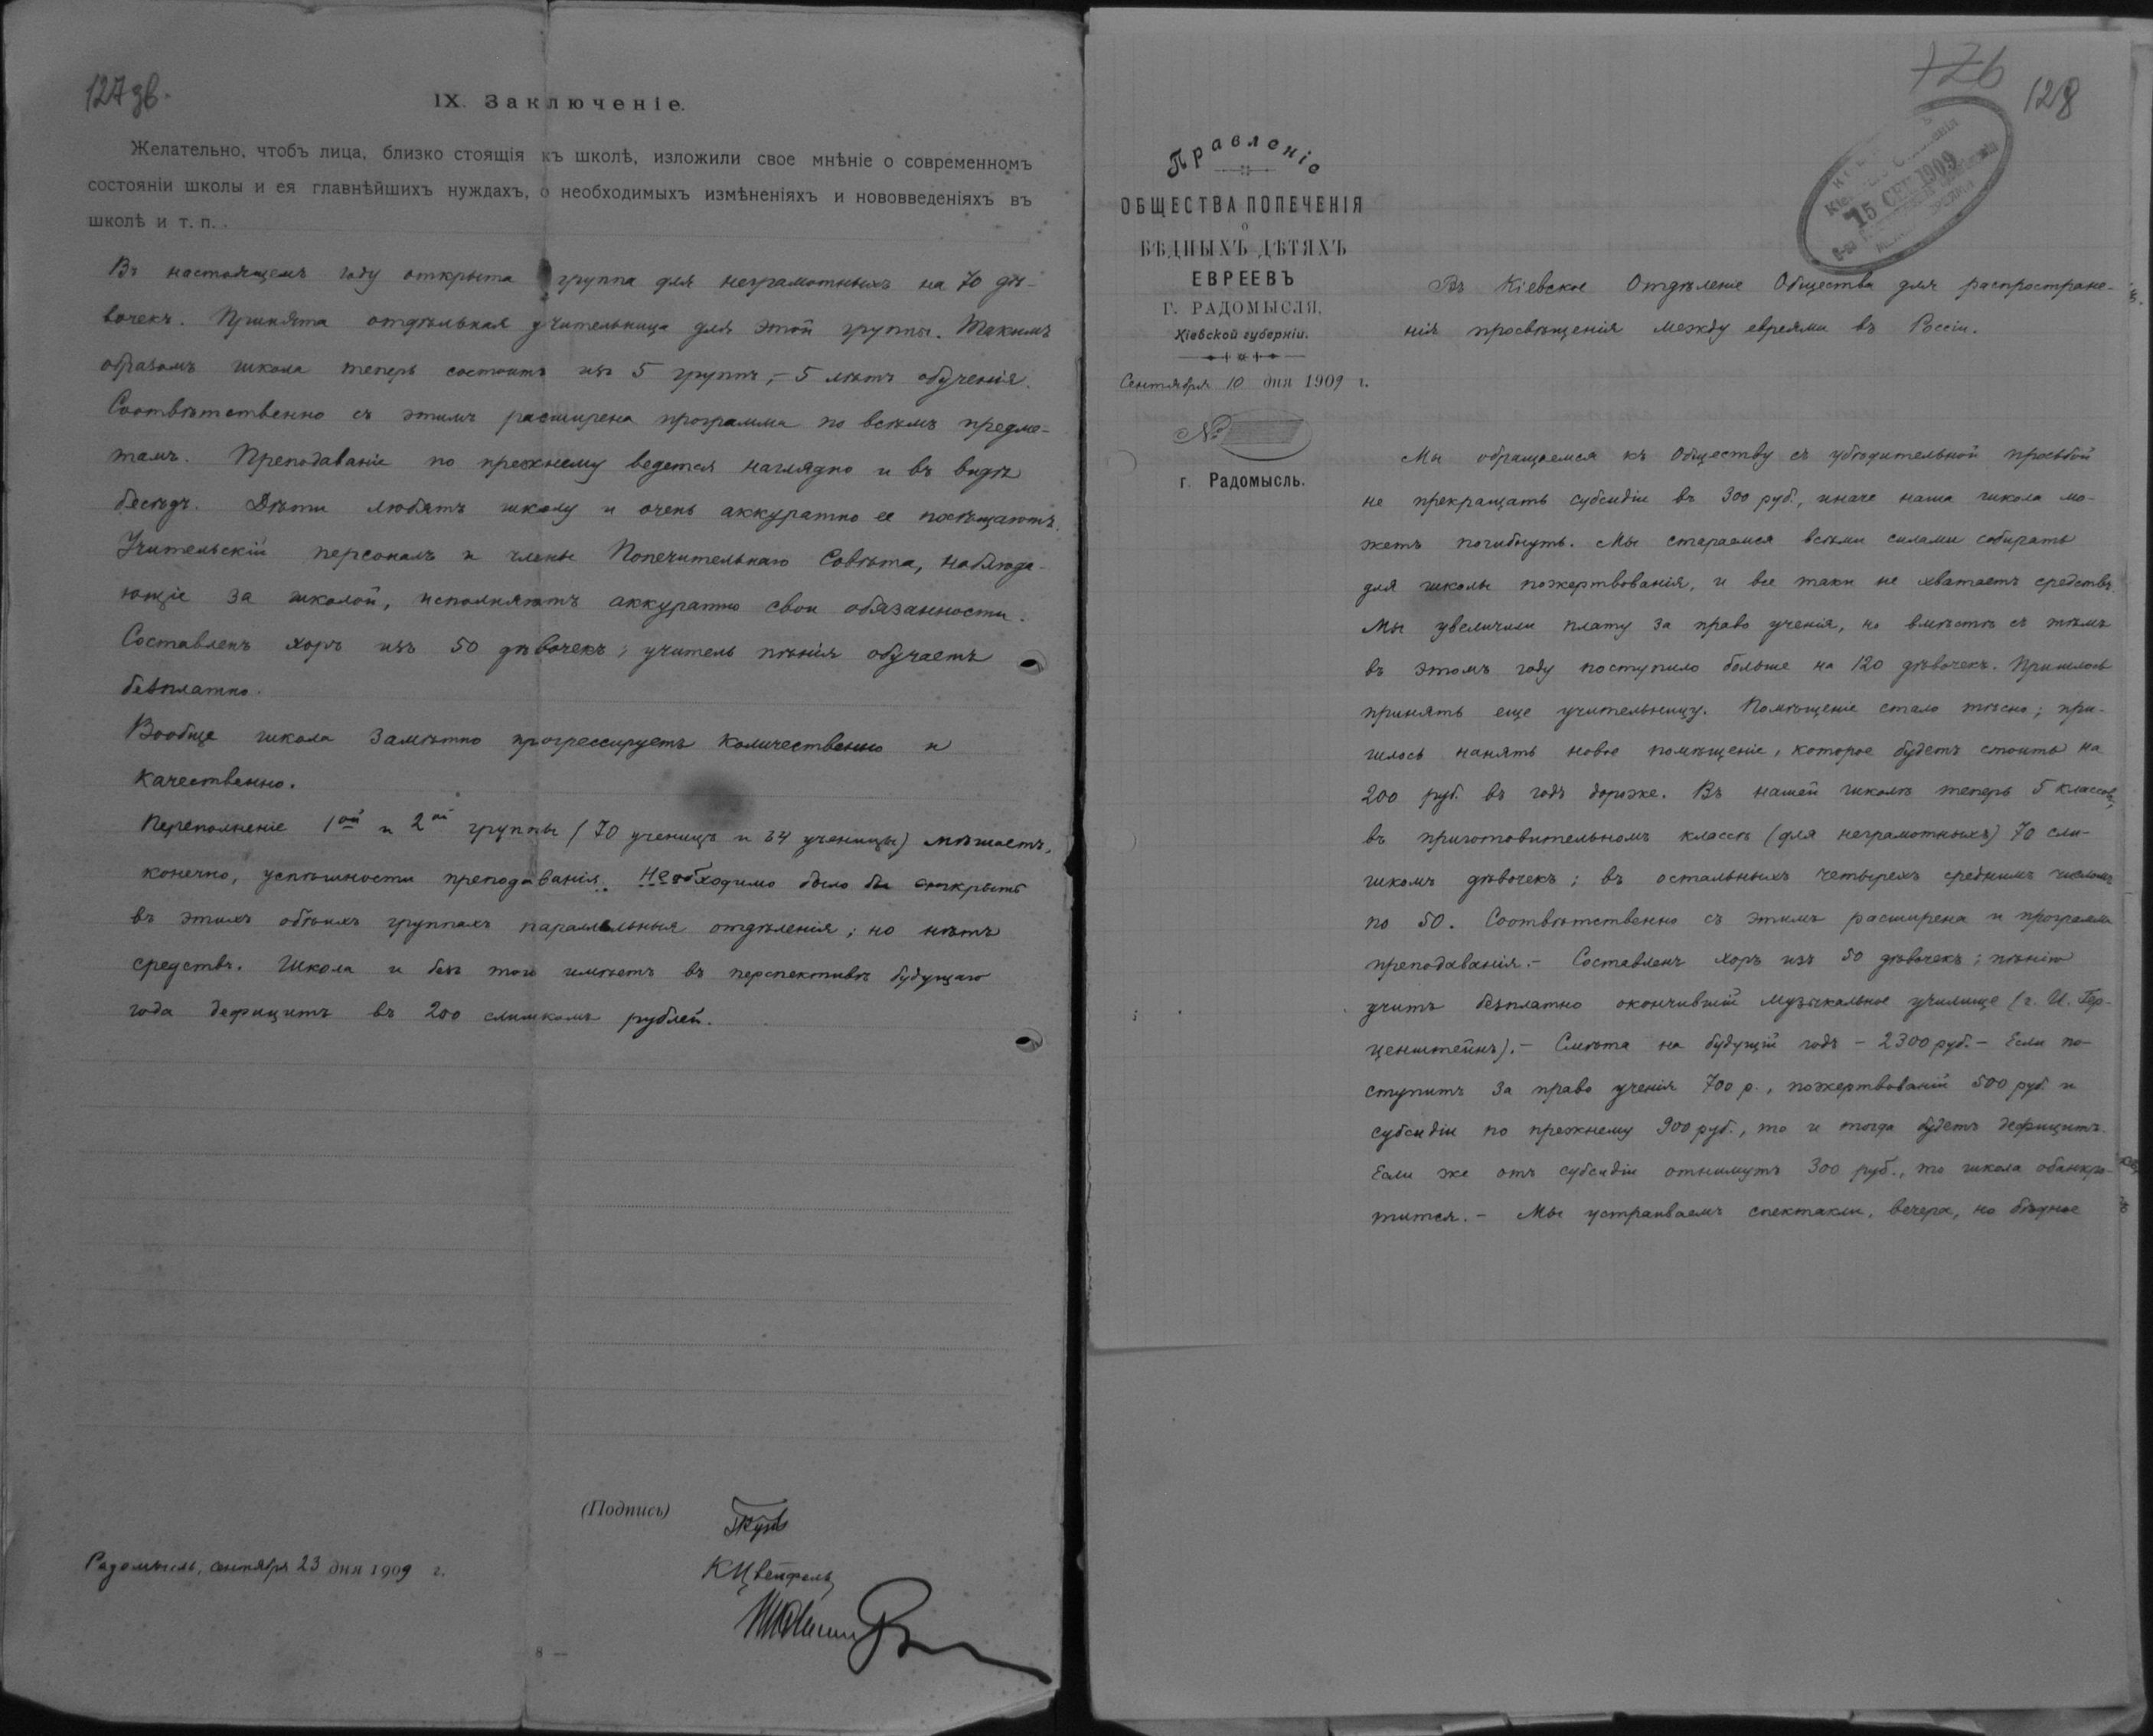 127 об.
IX. Заключеніе.
Желательно, чтобъ лица, близко стоящія къ школѣ, изложили свое мнѣніе о современномъ
состояніи школы и ея главнѣйшихъ нуждахъ, о необходимыхъ измѣненіяхъ и нововведеніяхъ въ
школѣ и т. п.
Въ настоящемъ году открыта группа для неграмотныхъ на 70 дѣ-
вочекъ. Принята отдѣльная учительница для этой группы. Такимъ
образомъ школа теперь состоитъ изъ 5 группъ, – 5 лѣтъ обученія.
Соотвѣтственно съ этимъ расширена программа по всѣмъ предме-
тамъ. Преподаваніе по прежнему ведется наглядно и въ видѣ
бесѣдъ. Дѣти любятъ школу и очень аккуратно ее посѣщаютъ.
Учительскій персоналъ и члены Попечительнаго Совѣта, наблюда-
ющіе за школой, исполняютъ аккуратно свои обязанности.
Составленъ хоръ изъ 50 дѣвочекъ; учитель пѣнія обучаетъ
безплатно.
Вообще школа замѣтно прогрессируетъ количественно и
качественно.
Переполненіе 1ой и 2ой группы (70 ученицъ и 64 ученицы) мѣшаетъ,
конечно, успѣшности преподаванія. Необходимо было бы открыть
въ этихъ обѣихъ группахъ параллельныя отдѣленія; но нѣтъ
средствъ. Школа и безъ того имѣетъ въ перспективѣ будущаго
года дефицитъ въ 200 слишкомъ рублей.
(Подпись)
К Цвейфель
Радомысль, сентября 23 дня 1909 г.
8 —
126
128
15 СЕН 1909
Правленіе
ОБЩЕСТВА ПОПЕЧЕНІЯ
о
БѢДНЫХЪ ДѢТЯХЪ
ЕВРЕЕВЪ
Г. РАДОМЫСЛЯ.
Кіевской губерніи.
Сентября 10 дня 1909 г.
№
г. Радомысль.
Въ Кіевское Отдѣленіе Общества для распростране-
нія просвѣщенія между евреями въ Россіи.
Мы обращаемся къ Обществу съ убѣдительной просьбой
не прекращать субсидіи въ 300 руб., иначе наша школа мо-
жетъ погибнуть. Мы стараемся всѣми силами собирать
для школы пожертвованія, и все таки не хватаетъ средствъ.
Мы увеличили плату за право ученія, но вмѣстѣ съ тѣмъ
въ этомъ году поступило больше на 120 дѣвочекъ. Пришлось
принять еще учительницу. Помѣщеніе стало тѣсно; при-
шлось нанять новое помѣщеніе, которое будетъ стоить на
200 руб. въ годъ дороже. Въ нашей школѣ теперь 5 классовъ,
въ приготовительномъ классѣ (для неграмотныхъ) 70 сли-
шкомъ дѣвочекъ; въ остальныхъ четырехъ среднимъ числомъ
по 50. Соотвѣтственно съ этимъ расширена и программа
преподаванія. – Составленъ хоръ изъ 50 дѣвочекъ; пѣнію
учитъ безплатно окончившій музыкальное училище (г. И. Гер-
ценштейнъ). – Смѣта на будущій годъ – 2300 руб. – Если по-
ступитъ за право ученія 700 р., пожертвованій 500 руб. и
субсидіи по прежнему 900 руб., то и тогда будетъ дефицитъ.
Если же отъ субсидіи отнимутъ 300 руб., то школа обанкро-
тится. – Мы устраиваемъ спектакли, вечера, но бѣдное